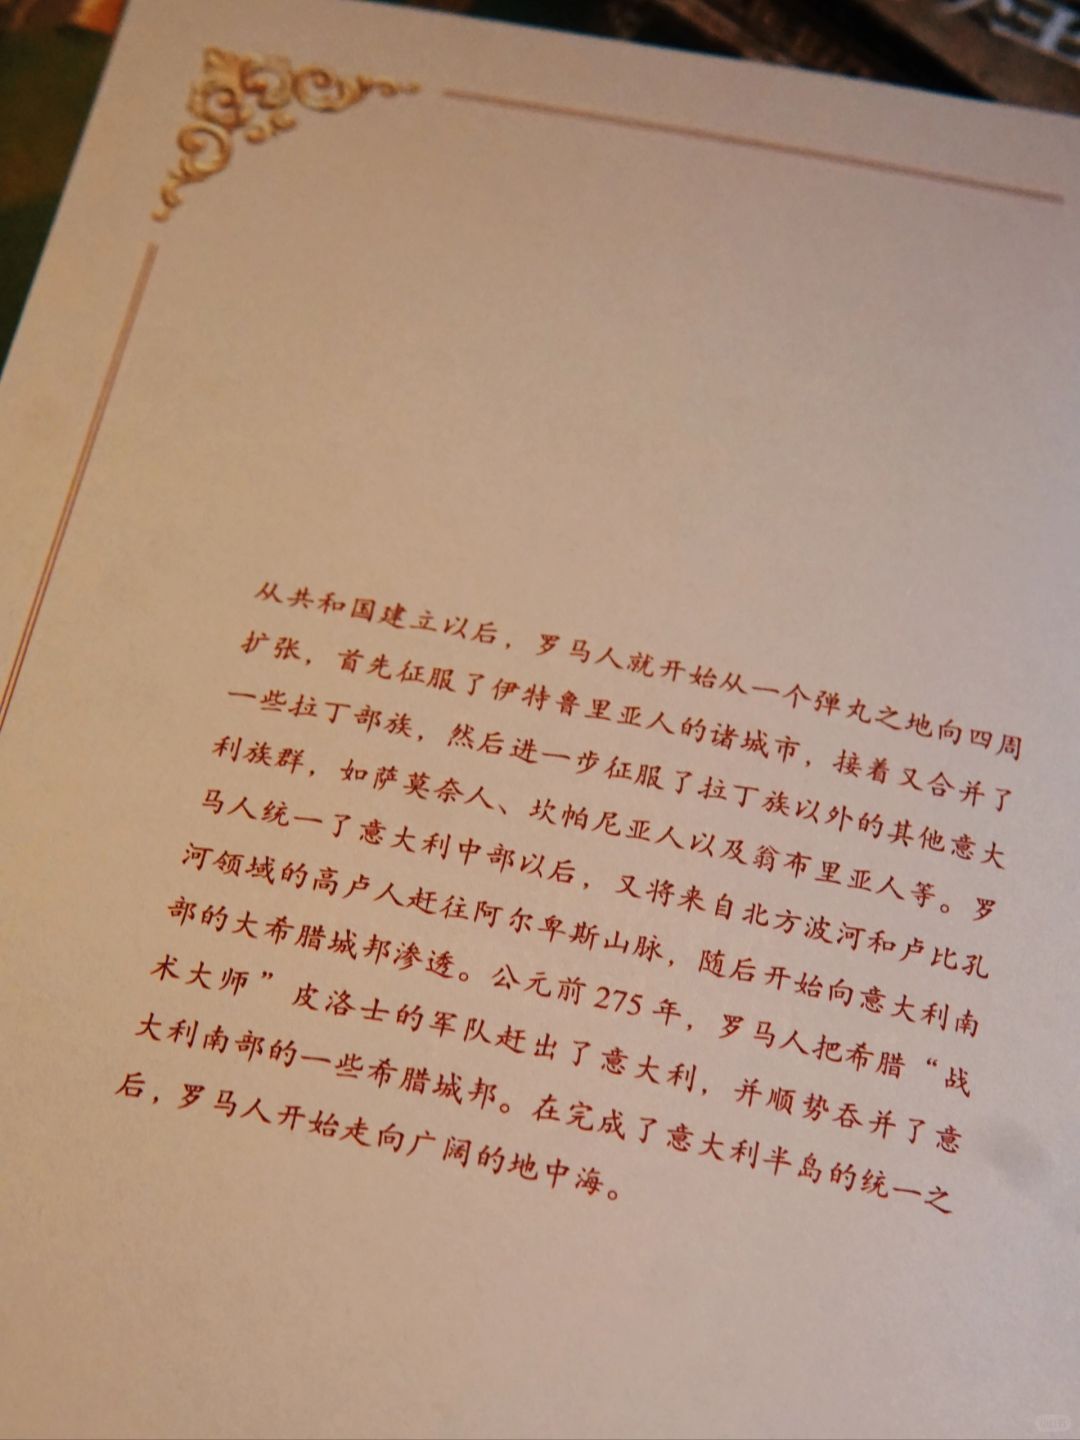 从共和国建立以后，罗马人就开始从一个弹丸之地向四周
扩张，首先征服了伊特鲁里亚人的诸城市，接着又合并了
一些拉丁部族，然后进一步征服了拉丁族以外的其他意大
利族群，如萨莫奈人、坎帕尼亚人以及翁布里亚人等。罗
马人统一了意大利中部以后，又将来自北方波河和卢比孔
河领域的高卢人赶往阿尔卑斯山脉，随后开始向意大利南
部的大希腊城邦渗透。公元前 275 年，罗马人把希腊“战
术大师”皮洛士的军队赶出了意大利，并顺势吞并了意
大利南部的一些希腊城邦。在完成了意大利半岛的统一之
后，罗马人开始走向广阔的地中海。